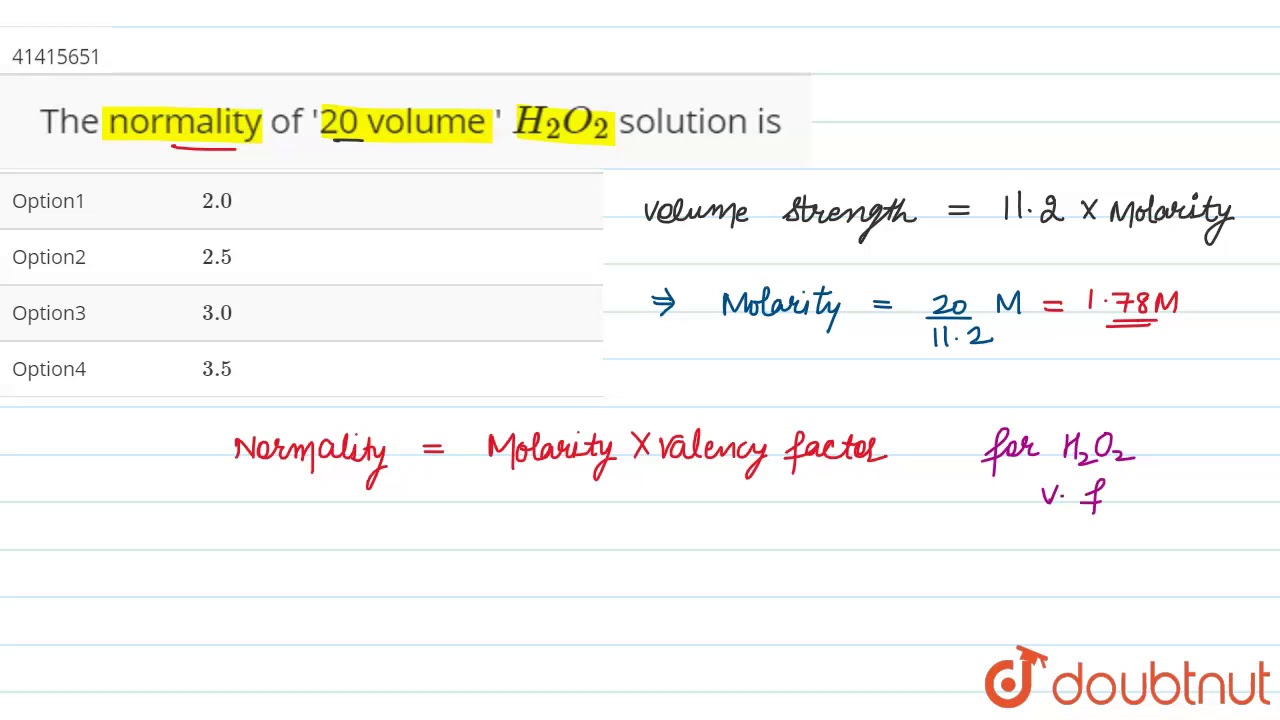 41415651
The normality of '20 volume ' H₂O₂ solution is
Option1 2.0
Option2 2.5
Option3 3.0
Option4 3.5
Volume strength = 11.2 × Molarity
⇒ Molarity = 20/11.2 M = 1.78M
Normality = Molarity × Valency factor
for H₂O₂
v. f
doubtnut